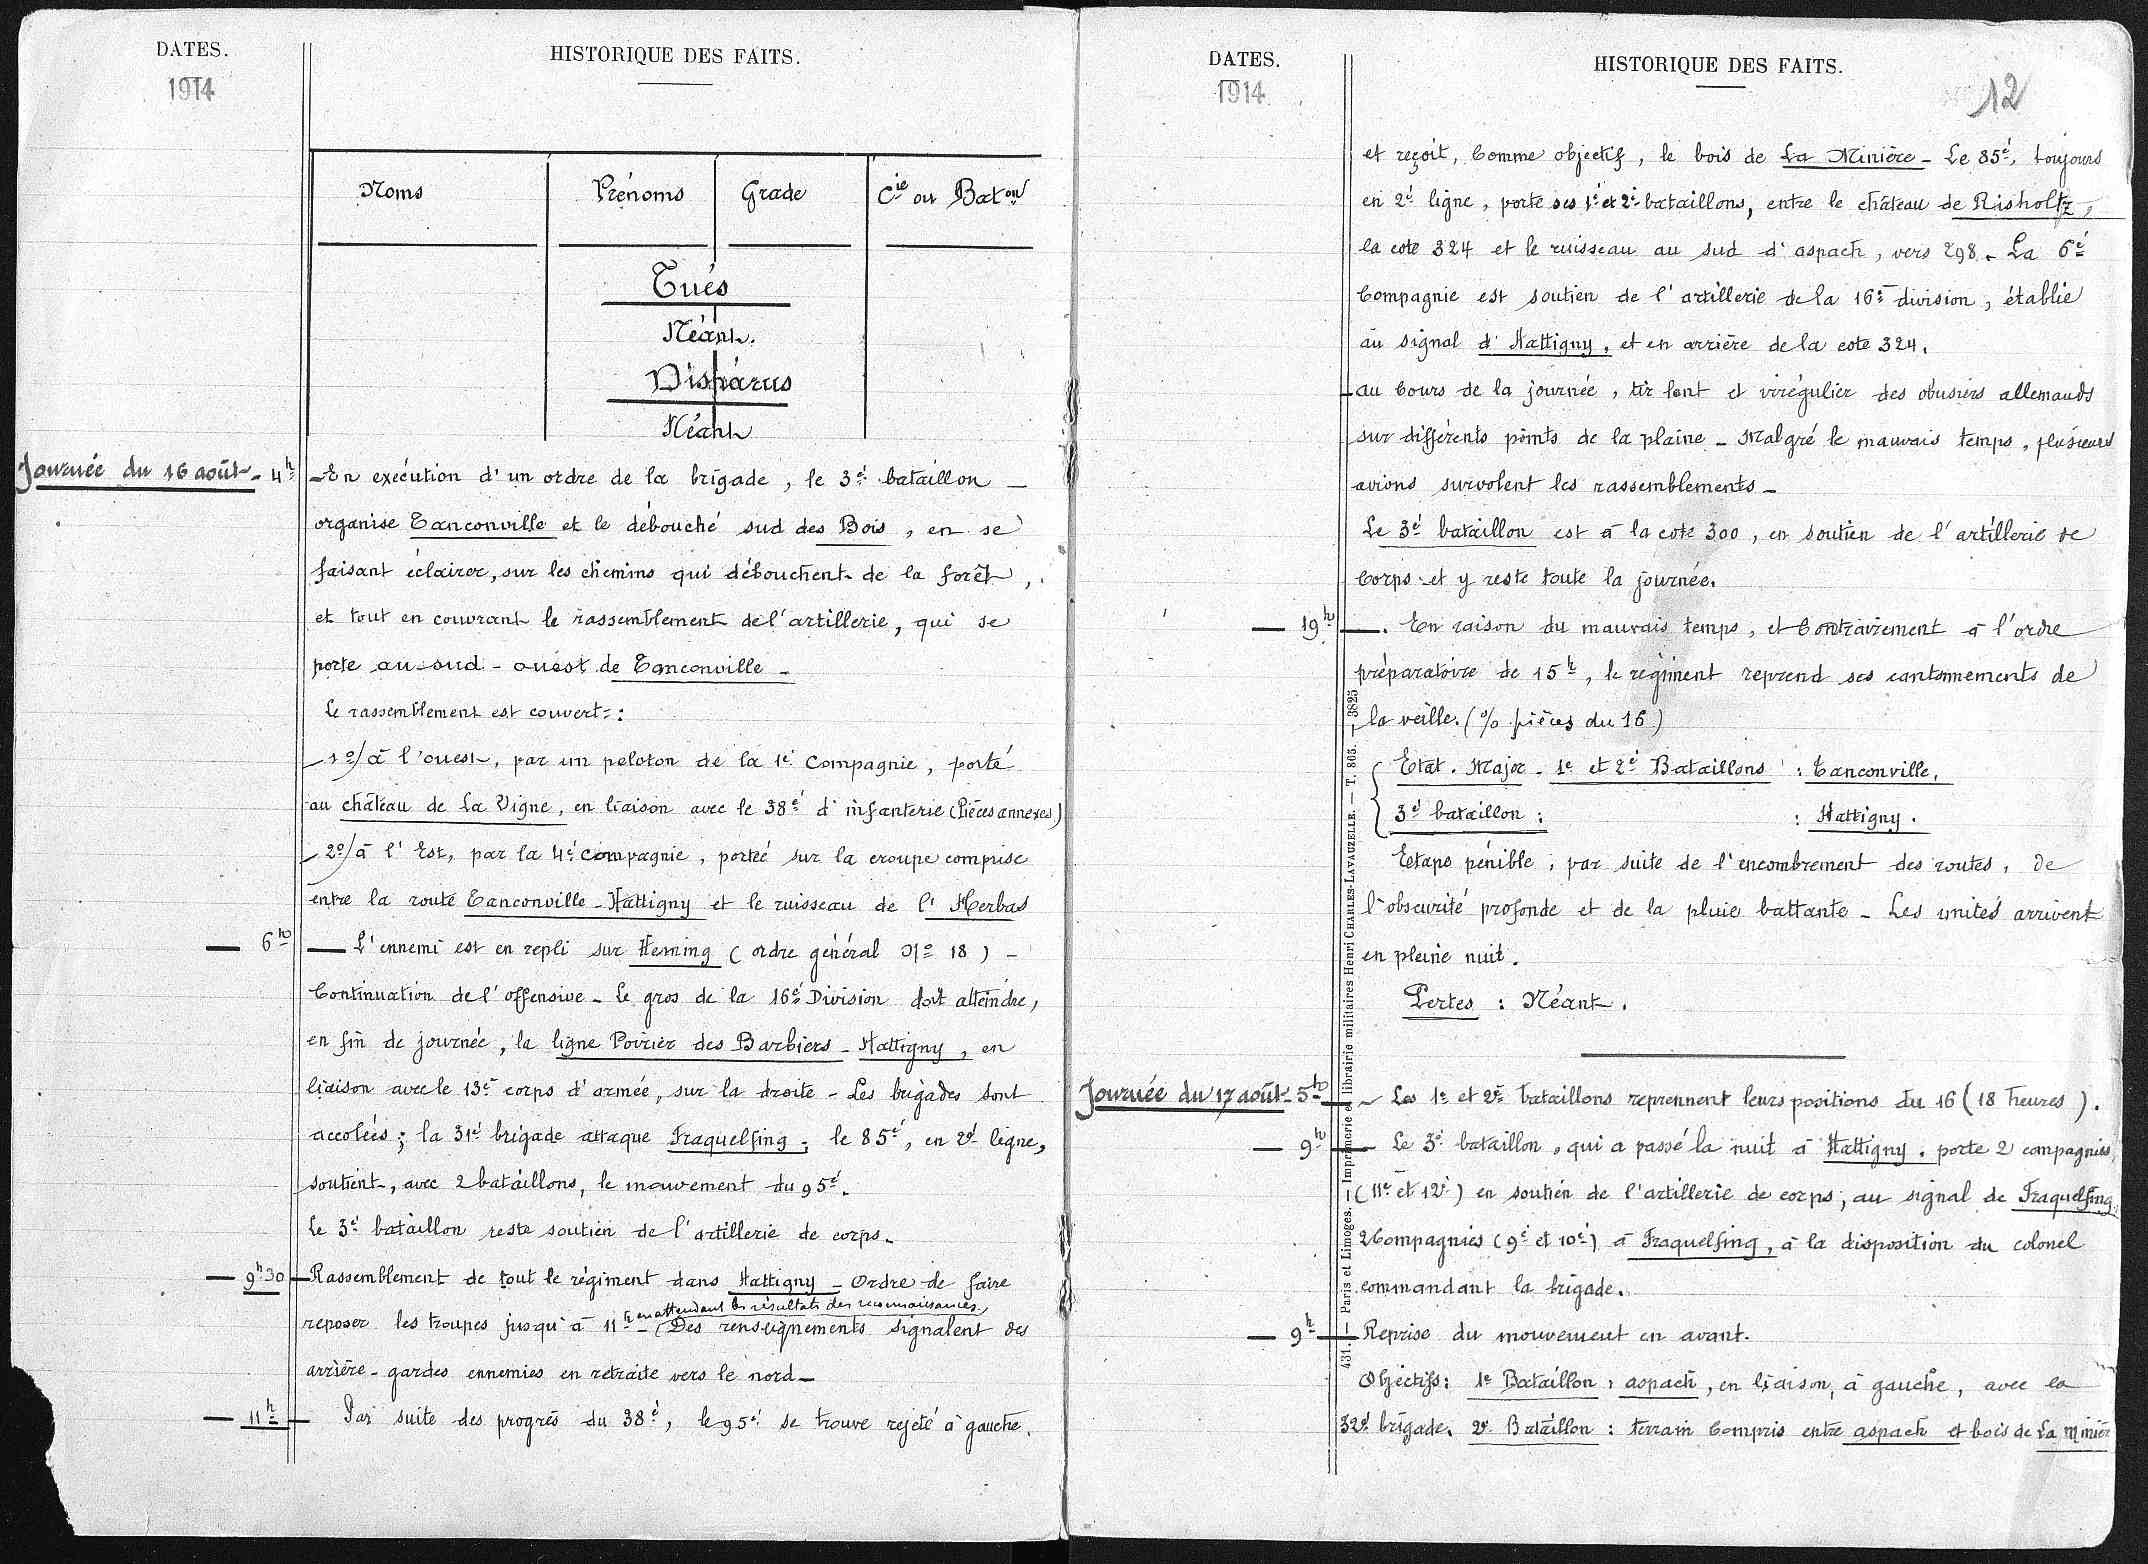 DATES.
HISTORIQUE DES FAITS.
1914
Noms
Prénoms
Grade
Cie ou Baton
Tués
Néant.
Disparus
Néant
Journée du 16 août - 4h - En exécution d'un ordre de la brigade, le 3è bataillon -
organise Tanconville et le débouché sud des Bois, en se
faisant éclairer, sur les chemins qui débouchent de la forêt,
et tout en couvrant le rassemblement de l'artillerie, qui se
porte au sud-ouest de Tanconville -
Le rassemblement est couvert :
- 1o/ à l'ouest, par un peloton de la 1è Compagnie, porté
au château de La Vigne, en liaison avec le 38è d'infanterie (Pièces annexes)
- 2o/ à l'Est, par la 4è compagnie, portée sur la croupe comprise
entre la route Tanconville - Hattigny et le ruisseau de l'Herbas
- 6h - L'ennemi est en repli sur Heming (ordre général No 18) -
Continuation de l'offensive - Le gros de la 16è Division doit atteindre,
en fin de journée, la ligne Poirier des Barbiers - Hattigny, en
liaison avec le 13è corps d'armée, sur la droite - Les brigades sont
accolées ; la 31è brigade attaque Fraquelfing ; le 85è, en 2è ligne,
soutient, avec 2 bataillons, le mouvement du 95è.
Le 3è bataillon reste soutien de l'artillerie de corps.
- 9h30 - Rassemblement de tout le régiment dans Hattigny - Ordre de faire
en attendant les résultats des reconnaissances,
reposer les troupes jusqu'à 11h - (Des renseignements signalent des
arrière-gardes ennemies en retraite vers le nord -
- 11h - Par suite des progrès du 38è, le 95è se trouve rejeté à gauche,
DATES.
HISTORIQUE DES FAITS.
1914
12
et reçoit, comme objectif, le bois de La Minière - Le 85è, toujours
en 2è ligne, porte ses 1è et 2è bataillons, entre le château de Risholtz,
la cote 324 et le ruisseau au sud d'aspach, vers 298. - La 6è
Compagnie est soutien de l'artillerie de la 16è division, établie
au signal d'Hattigny, et en arrière de la cote 324.
- au cours de la journée, tir lent et irrégulier des obusiers allemands
sur différents points de la plaine - Malgré le mauvais temps, plusieurs
avions survolent les rassemblements -
Le 3è bataillon est à la cote 300, en soutien de l'artillerie de
corps et y reste toute la journée.
- 19h - . En raison du mauvais temps, et contrairement à l'ordre
préparatoire de 15h, le régiment reprend ses cantonnements de
la veille. (% pièces du 16)
Etat. Major - 1è et 2è Bataillons : Tanconville,
3è bataillon : : Hattigny.
Etape pénible, par suite de l'encombrement des routes, de
l'obscurité profonde et de la pluie battante - Les unités arrivent
en pleine nuit.
Pertes : Néant.
Journée du 17 août - 5h - Les 1è et 2è bataillons reprennent leurs positions du 16 (18 heures).
- 9h - Le 3è bataillon, qui a passé la nuit à Hattigny, porte 2 compagnies
(11è et 12è) en soutien de l'artillerie de corps, au signal de Fraquelfing,
2 Compagnies (9è et 10è) à Fraquelfing, à la disposition du colonel
commandant la brigade.
- 9h - Reprise du mouvement en avant.
Objectifs : 1è Bataillon, aspach, en liaison, à gauche, avec la
32è brigade. 2è Bataillon : terrain compris entre aspach et bois de La Minièr
431. — Paris et Limoges. — Imprimerie et librairie militaires Henri CHARLES-LAVAUZELLE. — T. 863. — 3825